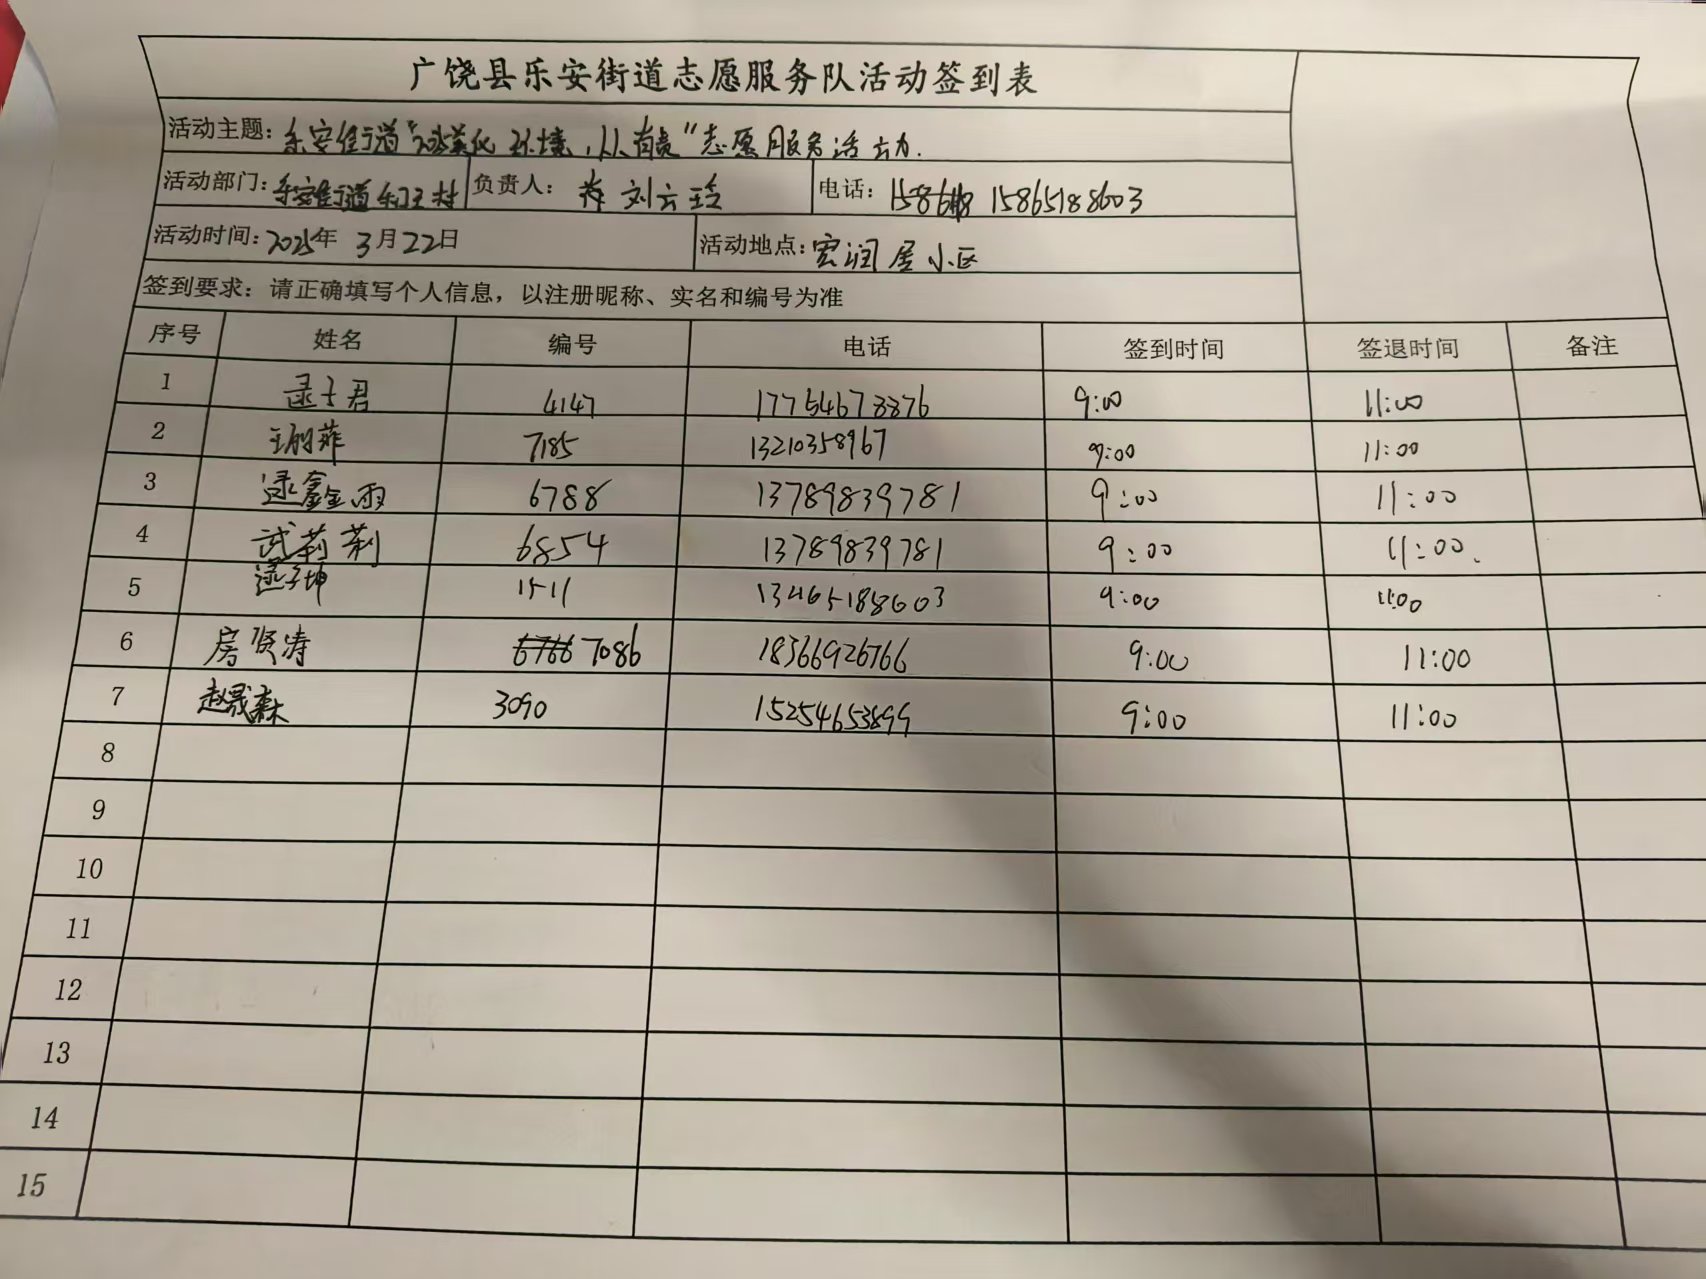 广饶县乐安街道志愿服务队活动签到表
活动主题：乐安街道“绿美化环境，人人有责”志愿服务活动.
活动部门：乐安街道 王村 负责人： 刘云玲 电话： 15865188603
活动时间：2025年 3月22日 活动地点：宏润居小区
签到要求：请正确填写个人信息，以注册昵称、实名和编号为准
序号 姓名 编号 电话 签到时间 签退时间 备注
1 逯子君 4147 17754678876 9:00 11:00
2 王丽菲 7185 13210358967 9:00 11:00
3 逯鑫雨 6788 13789839781 9:00 11:00
4 武莉莉 6854 13789839781 9:00 11:00.
5 逯子坤 1511 13465188603 9:00 11:00
6 房贤涛 6766 7086 18366926766 9:00 11:00
7 赵晟森 3090 15254653899 9:00 11:00
8
9
10
11
12
13
14
15